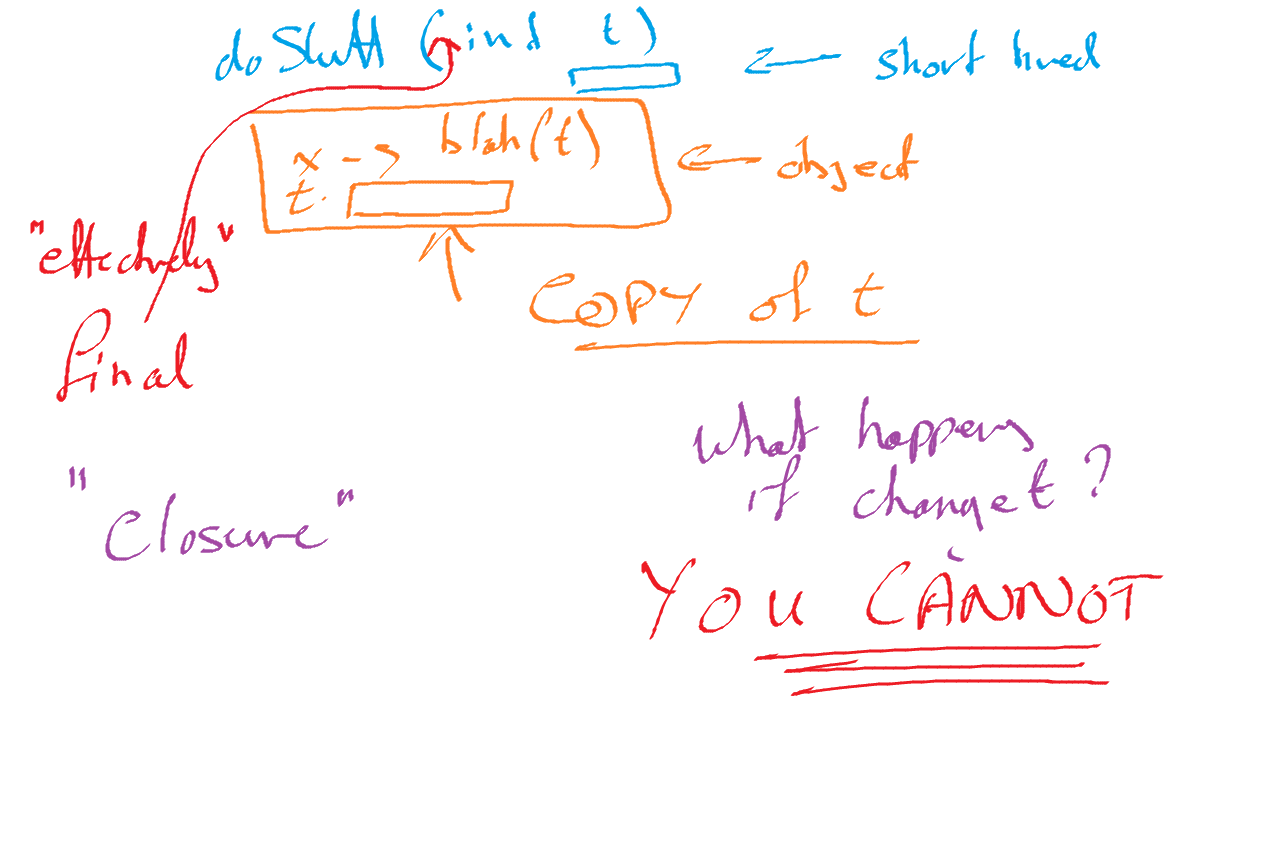 doStuff (int t)
← short lived
x -> blah(t)
t.
← object
"effectively"
final
COPY of t
what happens
if change t?
"Closure"
YOU CANNOT